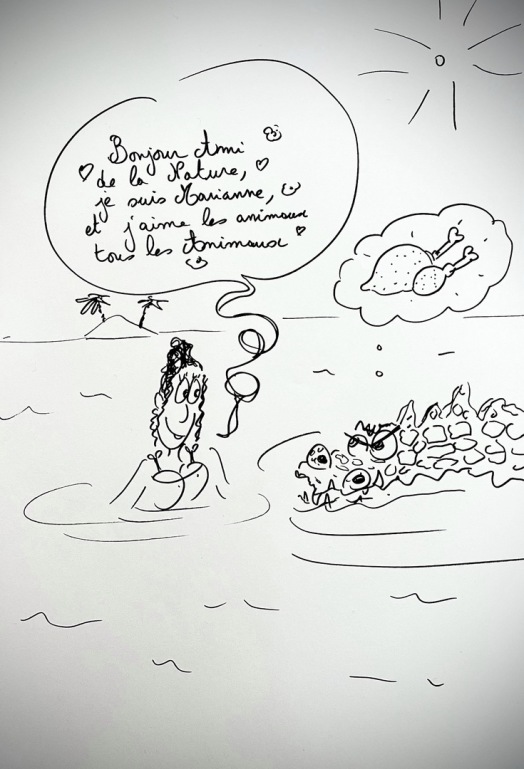 Bonjour Ami
de la Nature,
je suis Marianne,
et j'aime les animaux
tous les Animaux